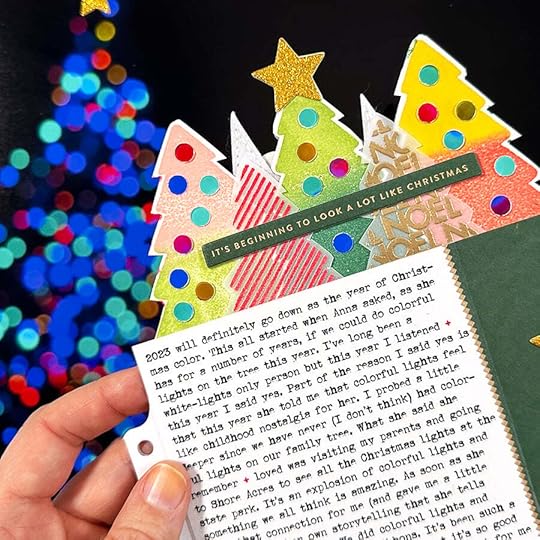 NOEL
NOEL
IT'S BEGINNING TO LOOK A LOT LIKE CHRISTMAS
2023 will definitely go down as the year of Christ-
mas color. This all started when Anna asked, as she
has for a number of years, if we could do colorful
lights on the tree this year. I've long been a
white-lights only person but this year I listened +
this year I said yes. Part of the reason I said yes is
that this year she told me that colorful lights feel
like childhood nostalgia for her. I probed a little
deeper since we have never (I don't think) had color-
lights on our family tree. What she said she
remember + loved was visiting my parents and going
to Shore Acres to see all the Christmas lights at the
state park. It's an explosion of colorful lights and
something we all think is amazing. As soon as she
that connection for me (and gave me a little
own storytelling that she tells
We did colorful lights and
It's been such a
it's so good
for me